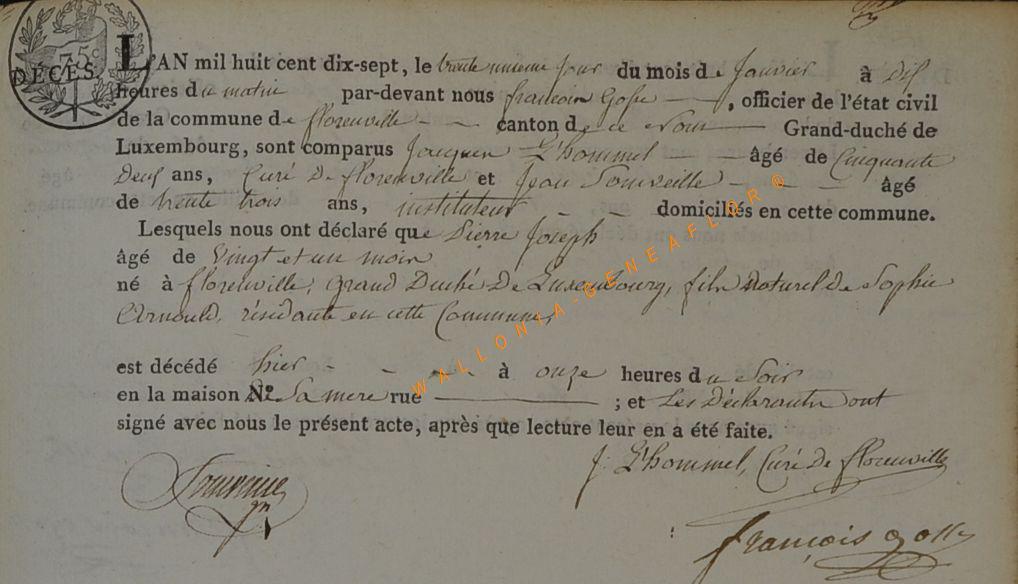 75 c
DÉCES.
L'AN mil huit cent dix-sept, le trente unieme jour du mois de Janvier à Dix
heures du matin par-devant nous francoin Goffe, officier de l'état civil
de la commune de florenville canton de ce Nom Grand-duché de
Luxembourg, sont comparus Jacquen L'hommel âgé de Cinquante
Deux ans, Curé De florenville et Jean Tourveille âgé
de trente trois ans, instituteur domiciliés en cette commune.
Lesquels nous ont déclaré que Pierre Joseph
âgé de Vingt et un moin
né à florenville, Grand Duché De Luxembourg, filn Naturel de Sophie
Arnould, résidante en cette Commune,
est décédé hier à onze heures du Soir
en la maison De Sa mere rue ; et Les Déclarantn ont
signé avec nous le présent acte, après que lecture leur en a été faite.
J. L'hommel, Curé De florenville
françois goffe
WALLONIA-GENEAFLOR ®